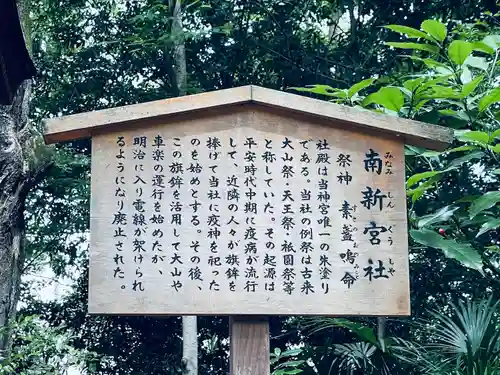 南新宮社
みなみしんぐうしゃ
祭神 素盞嗚命
すさのおのみこと
社殿は当神宮唯一の朱塗り
である。当社の例祭は古来
大山祭・天王祭・祇園祭等
と称していた。その起源は
平安時代中期に疫病が流行
して、近隣の人々が旗鉾を
捧げて当社に疫神を祀った
のを始めとする。その後、
この旗鉾を活用して大山や
車楽の運行を始めたが、
だし
明治に入り電線が架けられ
るようになり廃止された。